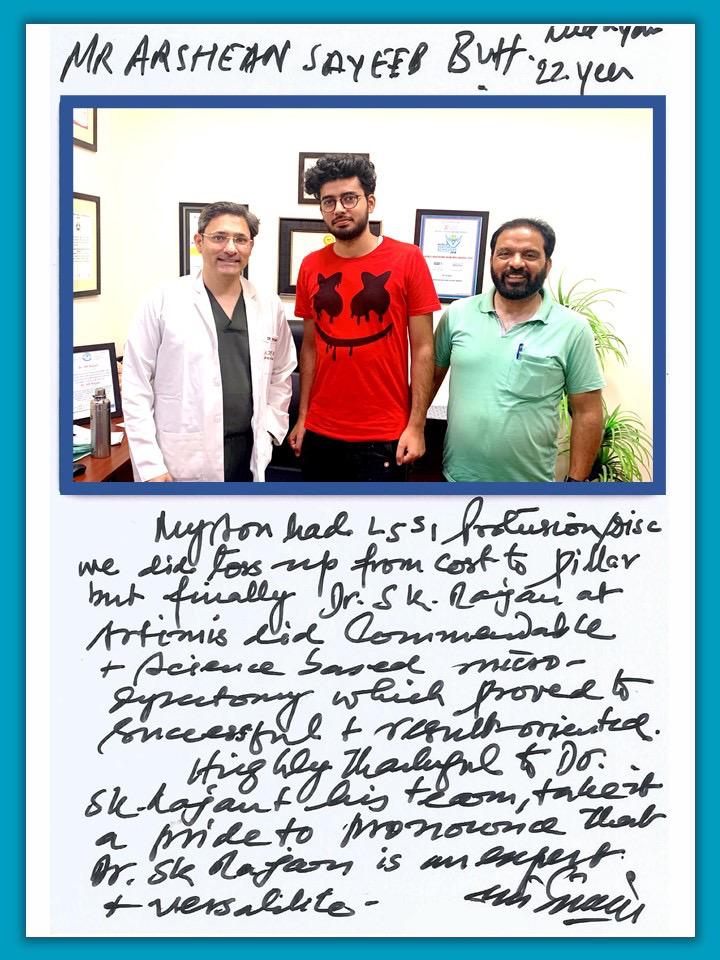 MR ARSHEAN SAYEEB Butt.
22 year
My son had L5S1 Protusion Disc
we did toss up from cost to Pillar
but finally Dr. S K. Rajan at
Artimis did Commendable
+ Science based micro-
which proved to
successful + result oriented.
Highly Thankful to Dr.
SK. Rajan + his team, take it
a pride to pronounce that
Dr. SK Rajan is an expert
+ versalite -